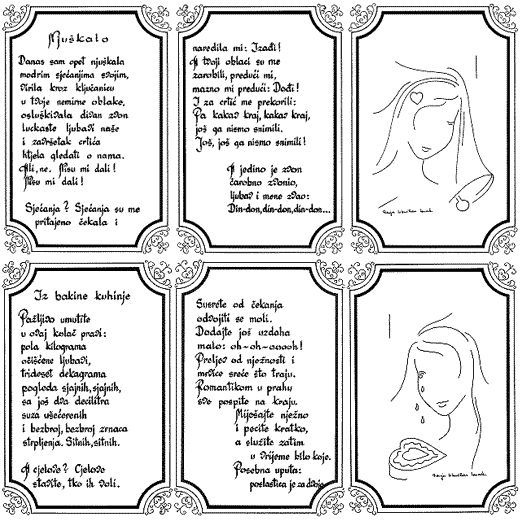 Njuškalo
Danas sam opet njuškala
modrim sjećanjima svojim,
virila kroz ključanicu
u tvoje nemirne oblake,
osluškivala divan zvon
luckaste ljubavi naše
i završetak crtića
htjela gledati o nama.
Ali, ne. Nisu mi dali!
Nisu mi dali!
Sjećanja? Sjećanja su me
pritajeno čekala i
naredila mi: Izađi!
A tvoji oblaci su me
zarobili, predući mi,
mazno mi predući: Dođi!
I za crtić me prekorili:
Pa kakav kraj, kakav kraj,
još ga nismo snimili.
Još, još ga nismo snimili!
A jedino je zvon
čarobno zvonio,
ljubav i mene zvao:
Din-don, din-don, din-don...
Iz bakine kuhinje
Pažljivo umutite
u ovaj kolač pravi:
pola kilograma
očišćene ljubavi,
trideset dekagrama
pogleda sjajnih, sjajnih,
sa još dva decilitra
suza ušećerenih
i bezbroj, bezbroj zrnaca
strpljenja. Sitnih, sitnih.
A cjelove? Cjelove
stavite, tko ih voli.
Susrete od čekanja
odvojiti se moli.
Dodajte još uzdaha
malo: oh-oh-ooooh!
Preljev od nježnosti i
mrvice sreće što traju.
Romantikom u prahu
sve pospite na kraju.
Miješajte nježno
i pecite kratko,
a služite zatim
u vrijeme bilo koje.
Posebna uputa:
poslastica je za dvoje.